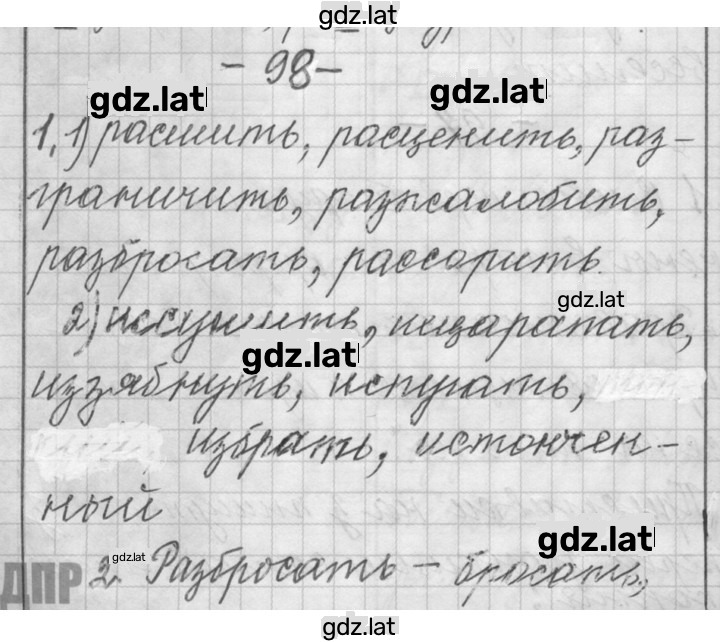 gdz.lat
- 98 -
gdz.lat gdz.lat
1. 1) расшить, расценить, раз-
граничить, разжалобить,
разбросать, рассорить.
gdz.lat
2) иссушить, исцарапать,
gdz.lat
иззябнуть, испугать,
избрать, истончен-
ный
gdz.lat
gdz.lat
ДПР 2. Разбросать – бросать,
gdz.lat